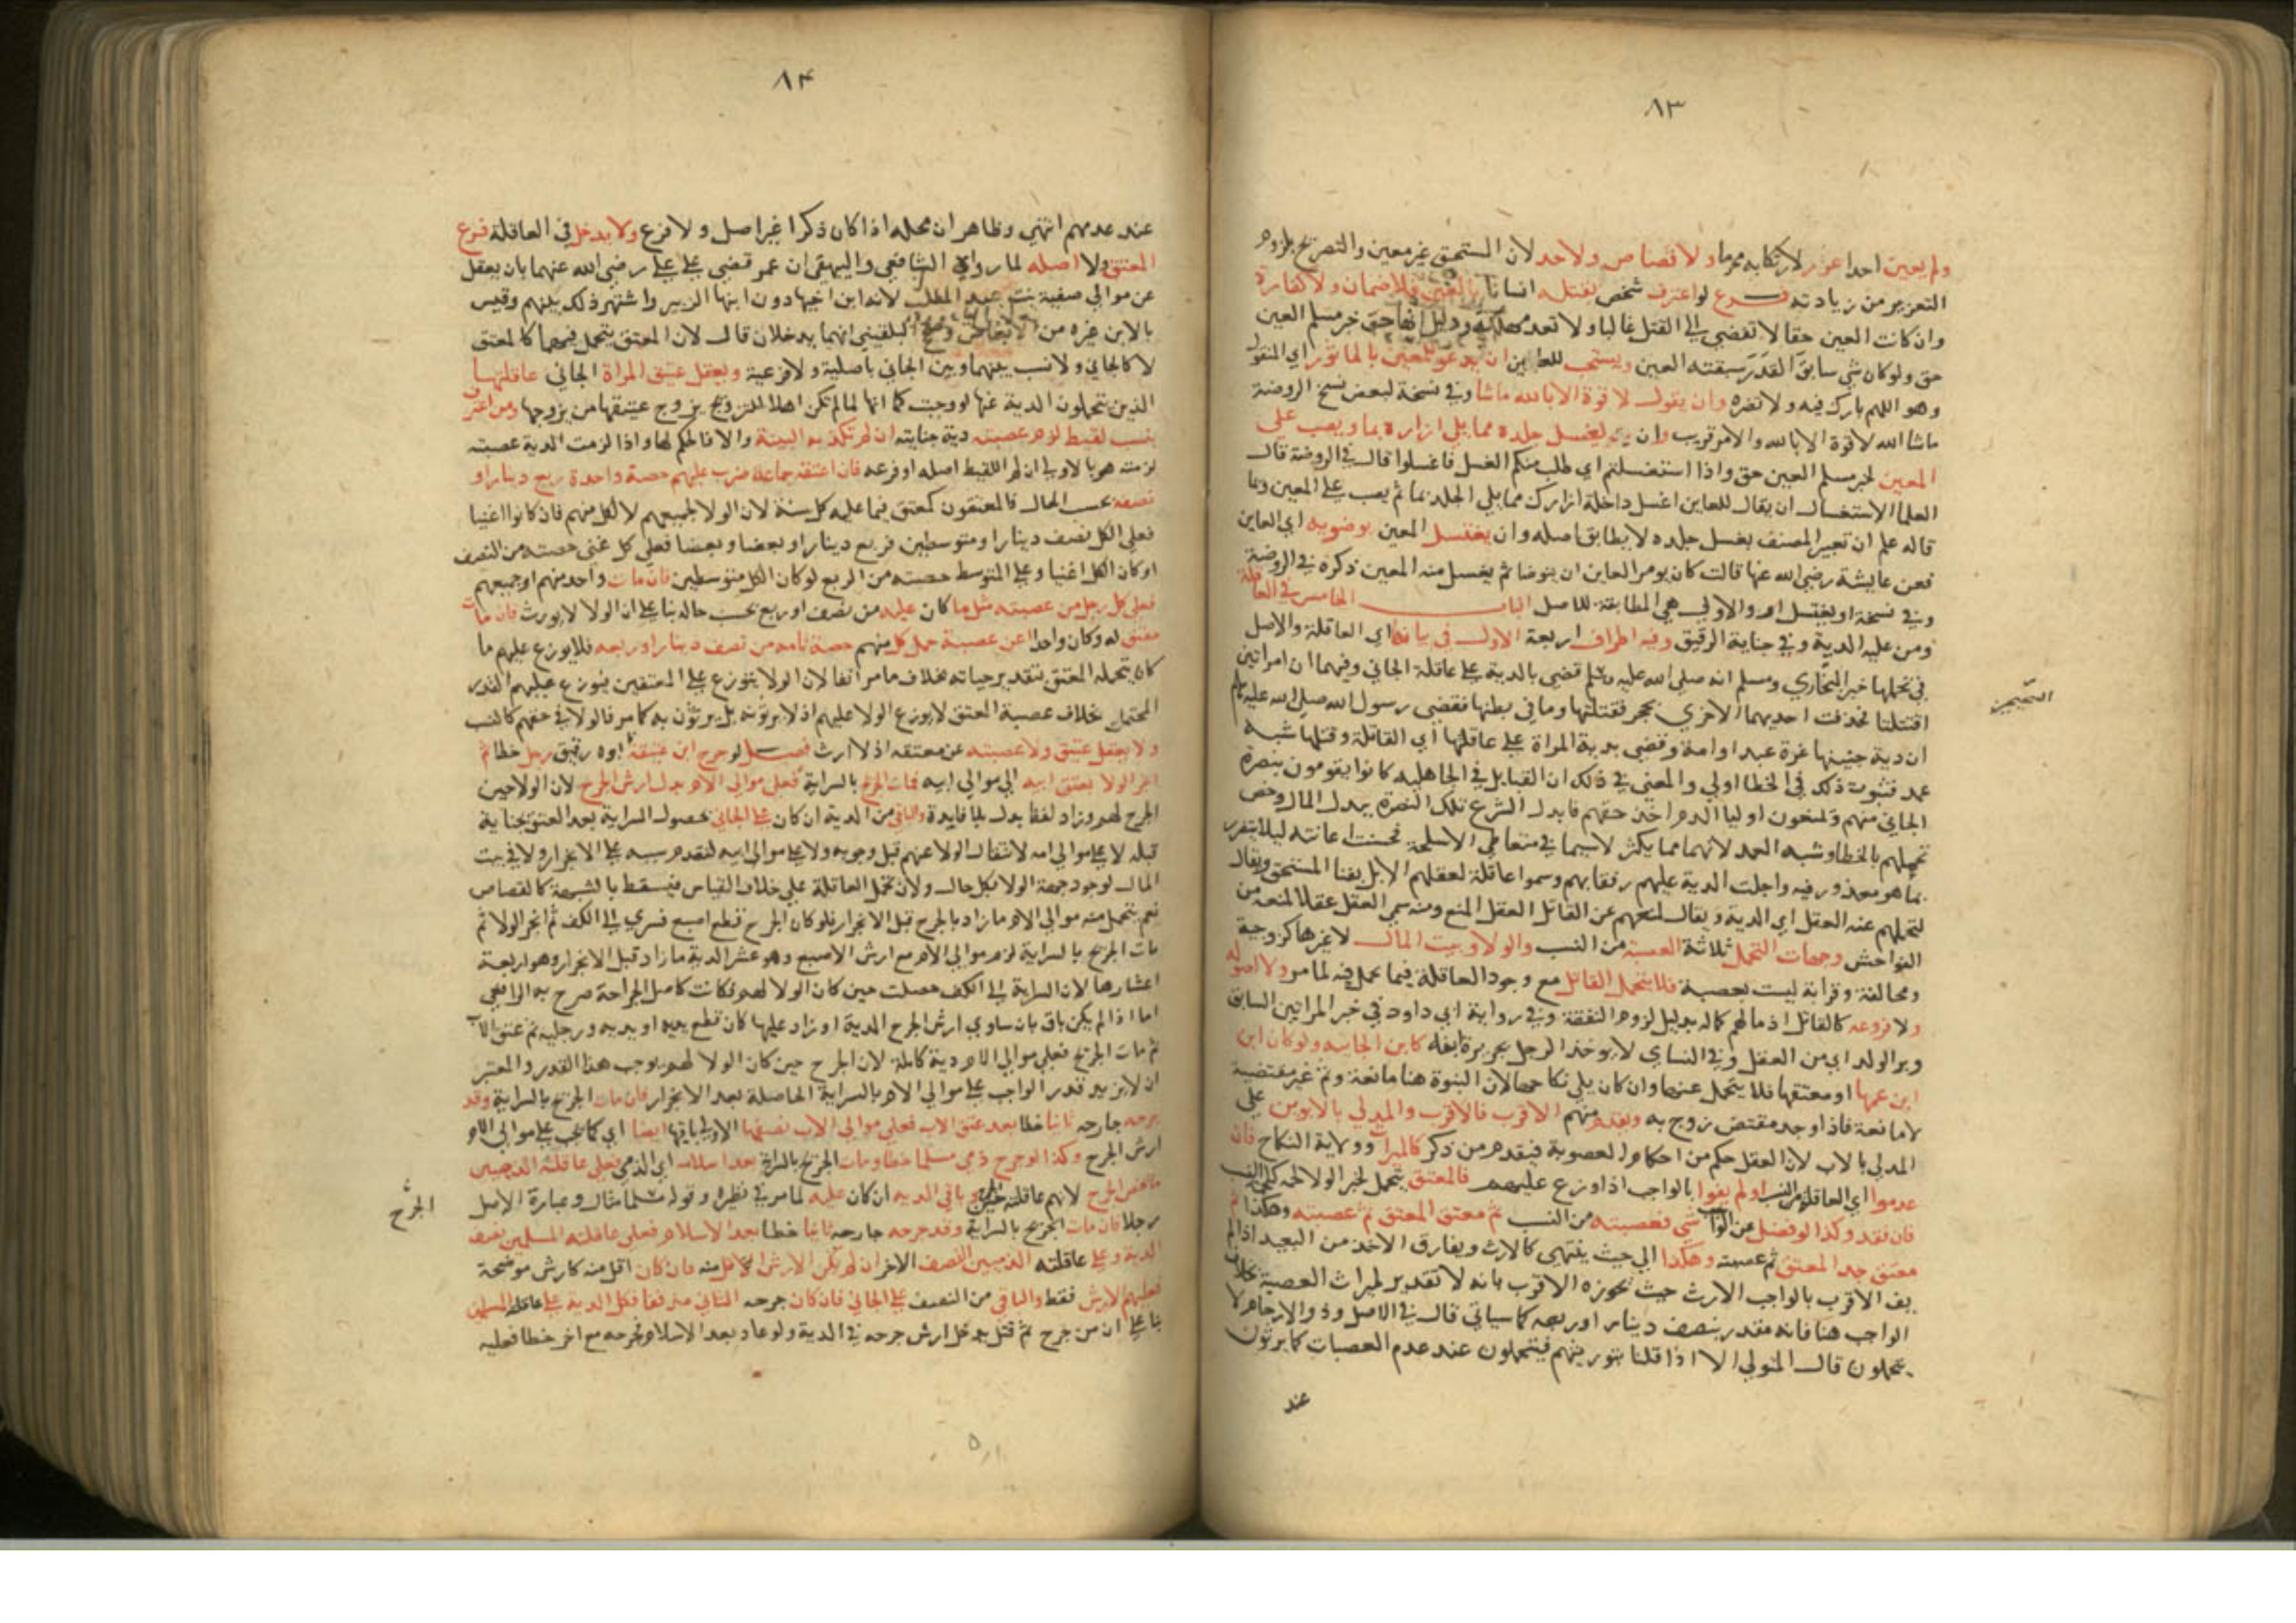 ٨٣
ولم يعين احدا عزر لارتكابه محرما ولا قصاص ولا حد لان المستحق غير معين والتصريح بلزوم
التعزير من زيادته فرع لو اعترف شخص بقتله انسانا بالعين فلا ضمان ولا كفارة
وان كانت العين حقا لا تفضي الى القتل غالبا ولا تعد مهلكة ودليل انها حق خبر مسلم العين
حق ولو كان شي سابق القدر سبقته العين ويستحب للعاين ان يدعو للمعين بالماثور اي المنقول
وهو اللهم بارك فيه ولا تضره وان يقول لا قوة الا بالله ماشا وفي نسخة لبعض نسخ الروضة
ماشا الله لا قوة الا بالله والامر قريب وان يغسل جلده مما يلي ازاره بما ويصب على
المعين لخبر مسلم العين حق واذا استغسلتم اي طلب منكم الغسل فاغسلوا قال في الروضة قال
العلما الاستغسال ان يقال للعاين اغسل داخلة ازارك مما يلي الجلد بما ثم يصب على المعين وبما
قاله علم ان تعبير المصنف بغسل جلده لا يطابق اصله وان يغتسل المعين بوضويه اي العاين
فعن عايشة رضي الله عنها قالت كان يومر العاين ان يتوضا ثم يغسل منه المعين ذكره في الروضة
وفي نسخة او يغتسل اهـ والاولى هي المطابقة للاصل الباب الخامس في العاقلة
ومن عليه الدية وفي جناية الرقيق وفيه اطراف اربعة الاول في بيانها اي العاقلة والاصل
في تحملها خبر البخاري ومسلم انه صلى الله عليه وسلم قضى بالدية على عاقلة الجاني وفيهما ان امراتين
اقتتلتا فحذفت احديهما الاخرى بحجر فقتلتها وما في بطنها فقضى رسول الله صلى الله عليه وسلم
ان دية جنينها غرة عبد او امة وقضى بدية المراة على عاقلتها اي القاتلة وقتلها شبه
عمد فثبوت ذلك في الخطا اولى والمعنى في ذلك ان القبايل في الجاهلية كانوا يقومون بنصرة
الجاني منهم ويمنعون اوليا الدم اخذ حقهم فابدل الشرع تلك النصرة ببذل المال وخص
تحملهم بالخطا وشبه العمد لانهما مما يكثر لاسيما في متعاطي الاسلحة فحسنت اعانته ليلا يتضرر
بما هو معذور فيه واجلت الدية عليهم رفقا بهم وسموا عاقلة لعقلهم الابل بفنا المستحق ويقال
لتحملهم عنه العقل اي الدية ويقال لمنعهم عن القاتل العقل المنع ومنه سمي العقل عقلا لمنعه من
الفواحش وجهات التحمل ثلاثة العصبة من النسب والولا وبيت المال لا غيرها كزوجية
ومحالفة وقرابة ليست بعصبة فلا يتحمل القاتل مع وجود العاقلة فيما يحمل فيه لما مر ولا اصوله
ولا فروعه كالقاتل اذ مالهم كماله بدليل لزوم النفقة وفي رواية ابي داود في خبر المراتين السابق
وبرا الولد اي من العقل وفي النساي لا يوخذ الرجل بجريرة ابنه كابن الجانية ولو كان ابن
ابن عمها او معتقها فلا يتحمل عنها وان كان يلي نكاحها لان البنوة هنا مانعة وثم غير مقتضية
لا مانعة فاذا وجد مقتض زوج به ويقدم منهم الاقرب فالاقرب والمدلي بالابوين على
المدلي بالاب لان العقل حكم من احكام العصوبة فيقدم من ذكر كالميراث وولاية النكاح فان
عدموا اي العاقلة من النسب او لم يفوا بالواجب اذا وزع عليهم فالمعتق يتحمل لخبر الولا لحمة كلحمة النسب
فان فقد وكذا لو فضل من الواجب شي فعصبته من النسب ثم معتق المعتق ثم عصبته وهكذا ثم
معتق جد المعتق ثم عصبته وهكذا الى حيث ينتهي كالارث ويفارق الاخذ من البعيد اذا لم
يف الاقرب بالواجب الارث حيث يحوزه الاقرب بانه لا تقدير لميراث العصبة بخلاف
الواجب هنا فانه مقدر بنصف دينار او ربعه كما سياتي قال في الاصل وذوو الارحام لا
يتحملون قال المتولي الا اذا قلنا بتوريثهم فيتحملون عند عدم العصبات كما يرثون
عند
٨٤
عند عدمهم انتهى وظاهر ان محله اذا كان ذكرا غير اصل ولا فرع ولا يدخل في العاقلة فرع
المعتق ولا اصله لما رواه الشافعي والبيهقي ان عمر قضى على علي رضي الله عنهما بان يعقل
عن موالي صفية بنت عبد المطلب لانه ابن اخيها دون ابنها الزبير واشتهر ذلك بينهم وقيس
بالابن غيره من الابعاض وصحح البلقيني انهما يدخلان قال لان المعتق يتحمل فهما كالمعتق
لا كالجاني ولا نسب بينهما وبين الجاني باصلية ولا فرعية ويعقل عتيق المراة الجاني عاقلتها
الذين يتحملون الدية عنها لو وجبت كما انها لما لم تكن اهلا للتزويج يزوج عتيقتها من يزوجها ومن اعترف
بنسب لقيط لزم عصبته دية جنايته ان لم تكذبه البينة والا فالحكم لها واذا لزمت الدية عصبته
لزمته هو بالاولى ان لم اللقيط اصله او فرعه فان اعتقه جماعة ضرب عليهم حصة واحدة ربع دينار او
نصفه بحسب الحال فالمعتقون كمعتق فيما عليه كل سنة لان الولا لجميعهم لا لكل منهم فان كانوا اغنيا
فعلى الكل نصف دينار او متوسطين فربع دينار او بعضا وبعضا فعلى كل غني حصته من النصف
لو كان الكل اغنيا وعلى المتوسط حصته من الربع لو كان الكل متوسطين فان مات واحد منهم او جميعهم
فعلى كل رجل من عصبته مثل ما كان عليه من نصف او ربع بحسب حاله بنا على ان الولا لا يورث فان مات
معتق له وكان واحدا عن عصبة حمل كل منهم حصة تامة من نصف دينار او ربعه فلا يوزع عليهم ما
كان يتحمله المعتق بتقدير حياته بخلاف ما مر انفا لان الولا يتوزع على المعتقين فيوزع عليهم القدر
المحتمل بخلاف عصبة المعتق لا يوزع الولا عليهم اذ لا يرثونه بل يرثون به كما مر فالولا في حقهم كالنسب
ولا يعقل عتيق ولا عصبته عن معتقه اذ لا ارث فصل لو جرح ابن عتيقة ابوه رقيق رجلا خطا ثم
انجر الولا بعتق ابيه الى موالي ابيه فمات الجريح بالسراية فعلى موالي الام بدل ارش الجرح لان الولا حين
الجرح لهم وزاد لفظ بدل بلا فايدة والباقي من الدية ان كان على الجاني لحصول السراية بعد العتق بجناية
قبله لا على موالي امه لانتقال الولا عنهم قبل وجوبه ولا على موالي ابيه لتقدم سببه على الانجرار ولا في بيت
المال لوجود جهة الولا بكل حال ولان تحمل العاقلة على خلاف القياس فيسقط بالشبهة كالقصاص
نعم يتحمل منه موالي الام ما زاد بالجرح قبل الانجرار فلو كان الجرح قطع اصبع فسرى الى الكف ثم انجر الولا ثم
مات الجريح بالسراية لزم موالي الام مع ارش الاصبع وهو عشر الدية ما زاد قبل الانجرار وهو اربعة
اعشارها لان السراية الى الكف حصلت حين كان الولا لهم فكانت كاصل الجراحة صرح به الرافعي
اما اذا لم يكن باق بان ساوى ارش الجرح الدية او زاد عليها كان قطع يديه او يديه ورجليه ثم عتق الاب
ثم مات الجريح فعلى موالي الام دية كاملة لان الجرح حين كان الولا لهم يوجب هذا القدر والمعتبر
ان لا يزيد قدر الواجب على موالي الام بالسراية الحاصلة بعد الانجرار فان مات الجريح بالسراية وقد
جرحه جارحه ثانيا خطا بعد عتق الاب فعلى موالي الاب نصفها الاولى باقيها ايضا اي كما يجب على موالي الام
ارش الجرح وكذا لو جرح ذمي مسلما خطا ومات الجريح بالسراية بعد اسلامه اي الذمي فعلى عاقلته الذميين
ما يخص الجرح لانهم عاقلته حين الجرح وباقي الدية ان كان عليه لما مر في نظيره وقوله مسلما مثال وعبارة الاصل
رجلا فان مات الجريح بالسراية وقد جرحه جارحه ثانيا خطا بعد الاسلام فعلى عاقلته المسلمين نصف
الدية وعلى عاقلته الذميين النصف الاخر ان لم يكن الارش اقل منه فان كان اقل منه كارش موضحة
فعليهم الارش فقط والباقي من النصف على الجاني فان كان جرحه الثاني مذففا فكل الدية على عاقلته المسلمين
بنا على ان من جرح ثم قتل يدخل ارش جرحه في الدية ولو عاد بعد الاسلام فجرحه مع اخر خطا فعليه
الجرح